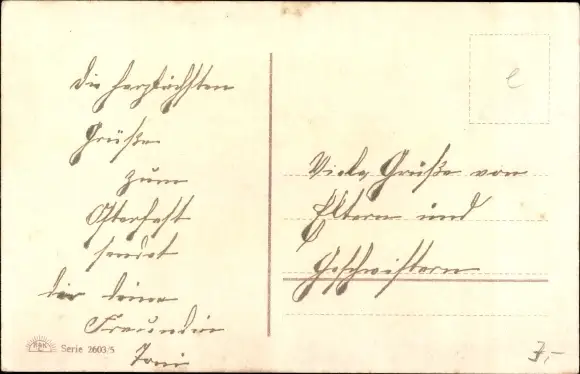 Die herzlichsten
Grüße
zum
Osterfest
sendet
dir deine
Freundin
Toni
Serie 2603/5
e
Viele Grüße von
Eltern und
Geschwistern
7,-